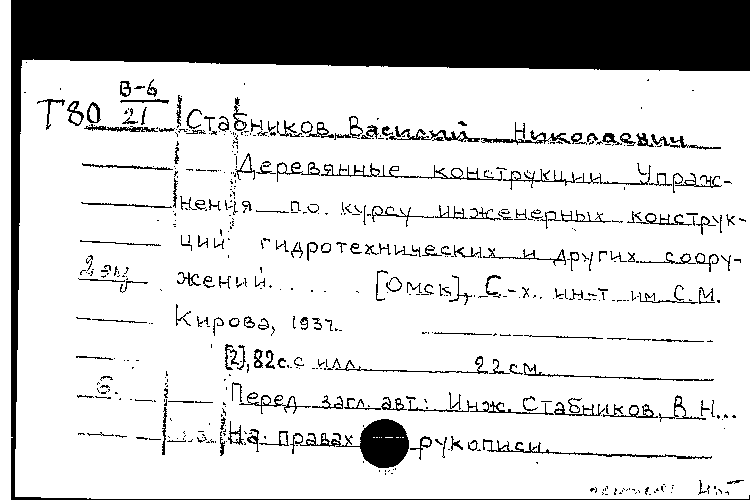 Т80 В-6/21 Стабников, Василий Николаевич
Деревянные конструкции. Упраж-
нения по курсу инженерных конструк-
ций гидротехнических и других соору-
2 экз жений. . . . . . [Омск], С.-х. ин-т им. С.М.
Кирова, 1937.
[2], 82 с. с илл. 22 см.
6. Перед загл. авт.: Инж. Стабников, В.Н...
На правах рукописи.